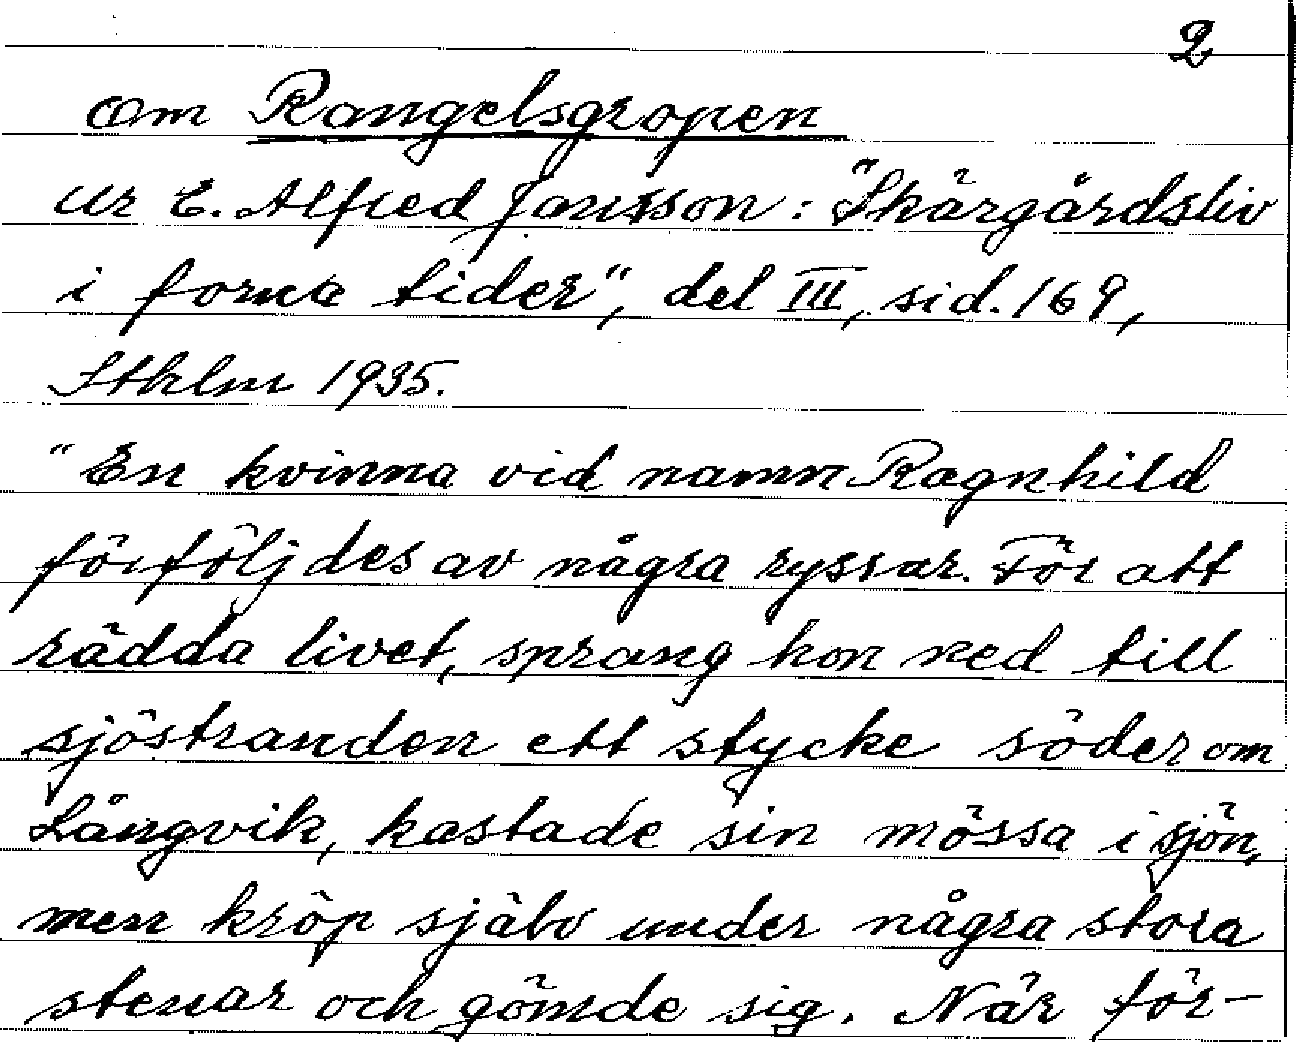 2
om Rangelsgropen
ur E. Alfred Jansson: "Skärgårdsliv
i forna tider", del III, sid. 169,
Sthlm 1935.
"En kvinna vid namn Ragnhild
förföljdes av några ryssar. För att
rädda livet, sprang hon ned till
sjöstranden ett stycke söder om
Långvik, kastade sin mössa i sjön,
men kröp själv under några stora
stenar och gömde sig. När för-